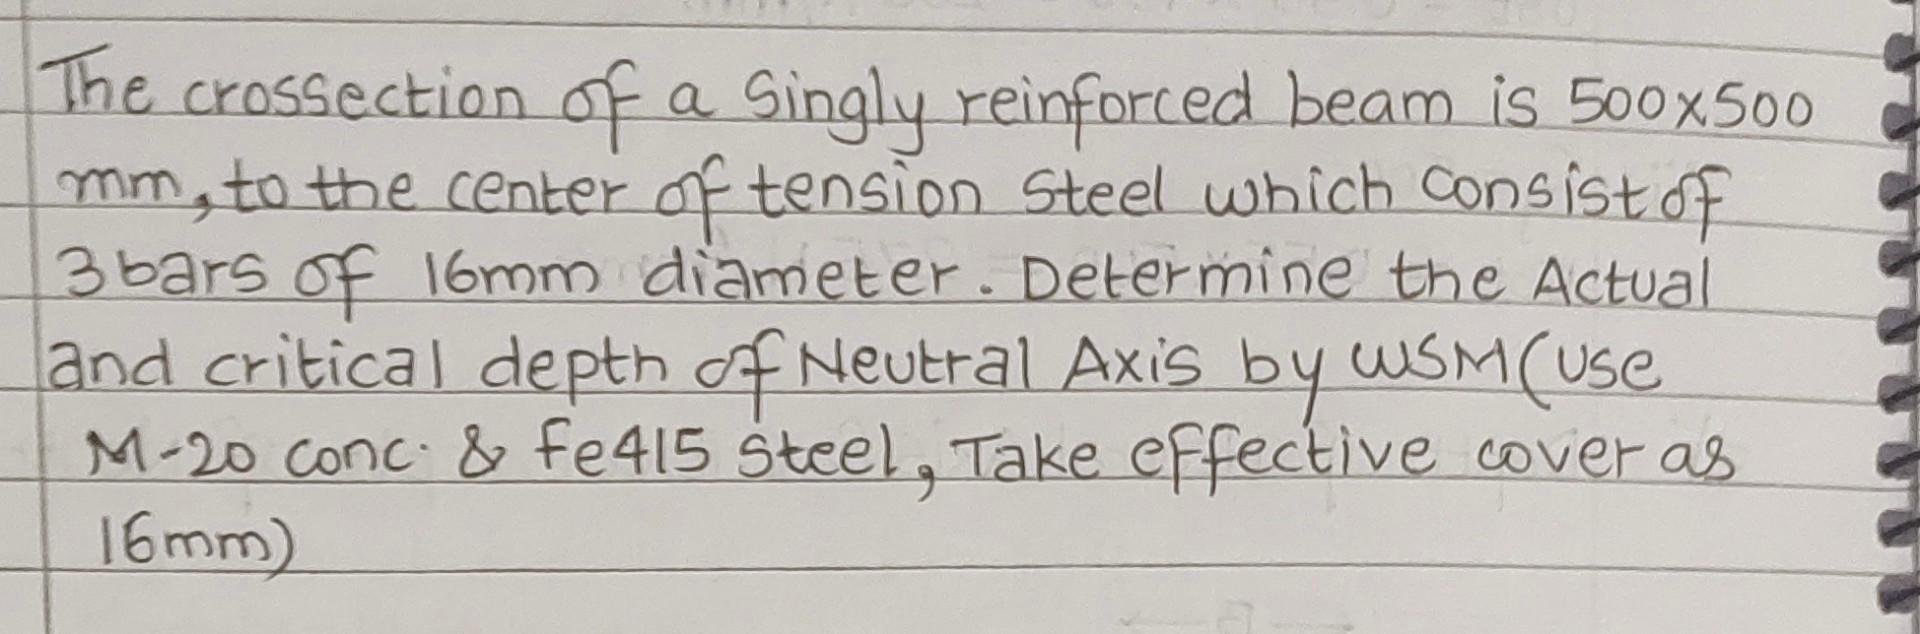 The crossection of a Singly reinforced beam is 500x500
mm, to the center of tension Steel which consist of
3 bars of 16mm diameter. Determine the Actual
and critical depth of Neutral Axis by WSM (use
M-20 conc. & fe415 steel, Take effective cover as
16mm)